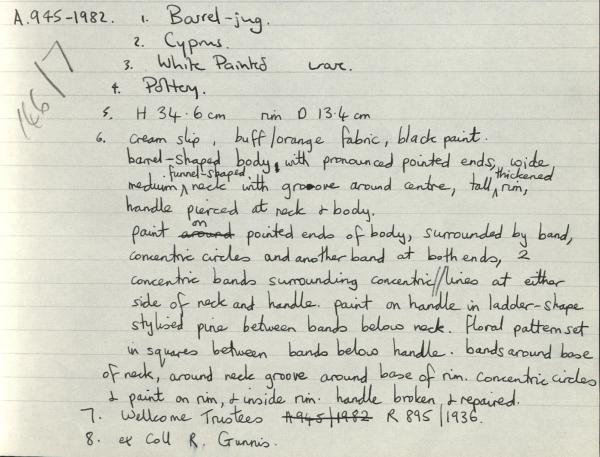 A.945-1982. 1. Barrel-jug.
2. Cyprus.
3. White Painted ware.
146/7
4. Pottery.
5. H 34.6 cm rim D 13.4 cm
6. cream slip, buff/orange fabric, black paint.
barrel-shaped body, with pronounced pointed ends, wide,
medium funnel-shaped neck with groove around centre, tall thickened rim,
handle pierced at neck & body.
paint around on pointed ends of body, surrounded by band,
concentric circles and another band at both ends, 2
concentric bands surrounding concentric // lines at either
side of neck and handle. paint on handle in ladder-shape
stylised pine between bands below neck. floral pattern set
in squares between bands below handle. bands around base
of neck, around neck groove around base of rim. Concentric circles
& paint on rim, & inside rim. handle broken & repaired.
7. Wellcome Trustees A945/1982 R 895/1936.
8. ex Coll R. Gunnis.